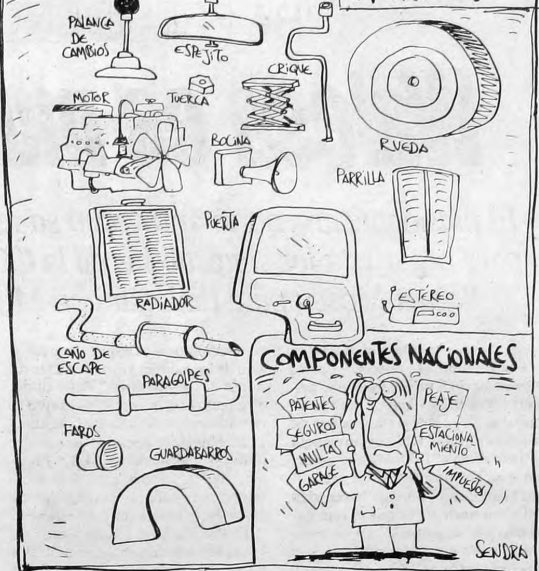 PALANCA
DE
CAMBIOS
ESPEJITO
CRIQUE
MOTOR
TUERCA
RUEDA
BOCINA
PARRILLA
PUERTA
RADIADOR
ESTÉREO
CAÑO DE
ESCAPE
PARAGOLPES
FAROS
GUARDABARROS
COMPONENTES NACIONALES
PATENTES
SEGUROS
MULTAS
GARAGE
PEAJE
ESTACIONA
MIENTO
IMPUESTOS
SENDRA